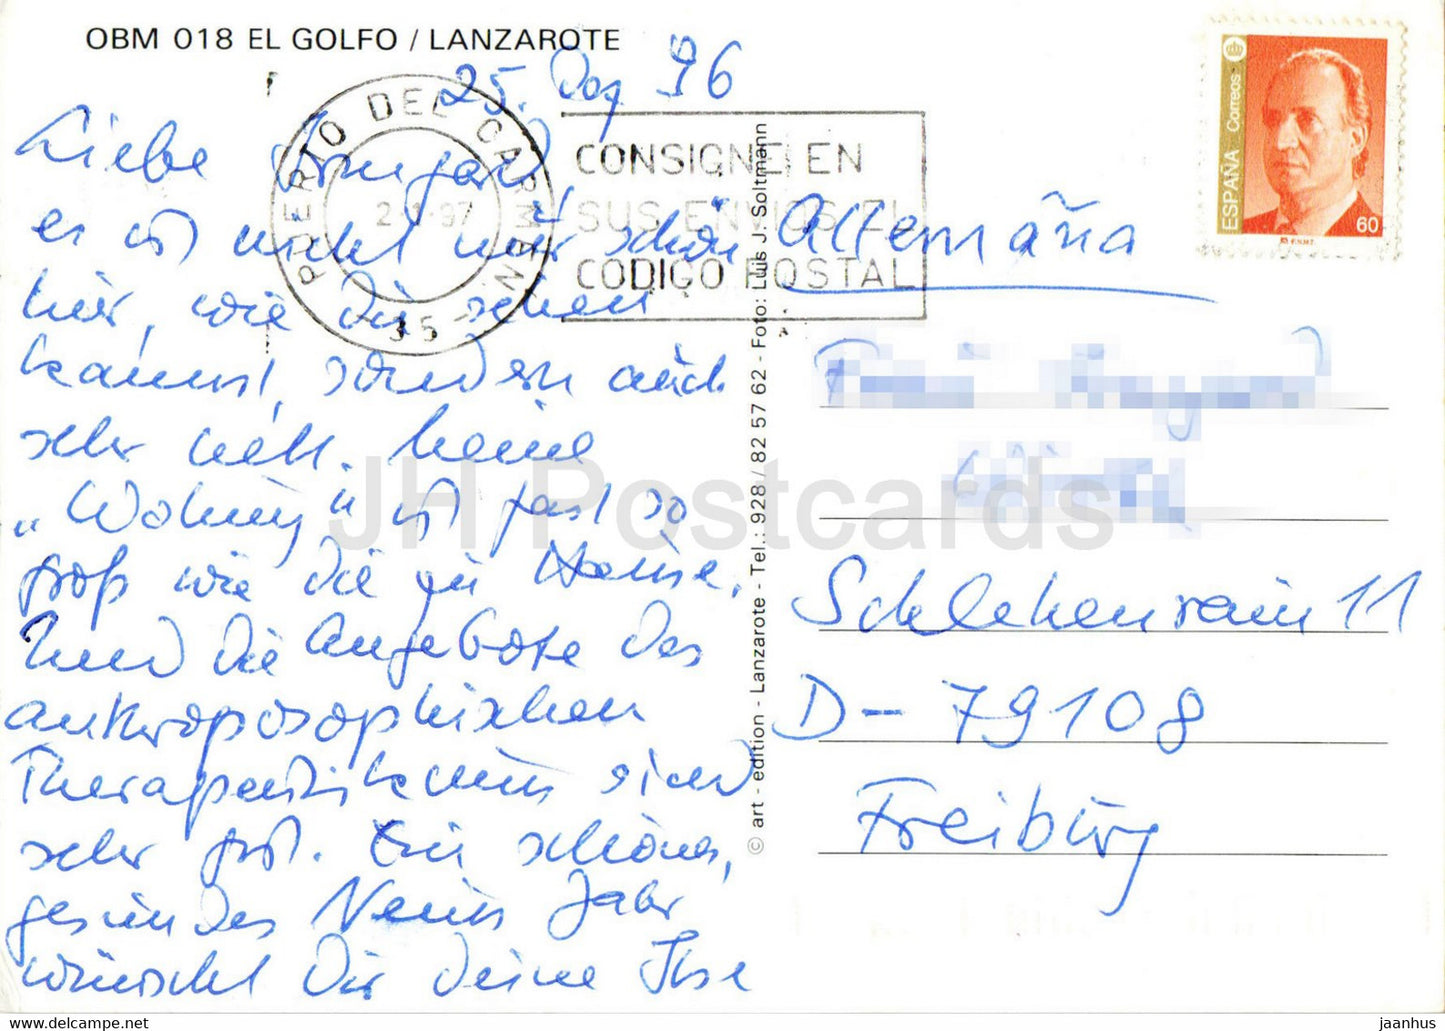 OBM 018 EL GOLFO / LANZAROTE
25. Dez 96
Liebe Irmgard,
es ist nicht nur schön
hier, wie Du sehen
kannst, sondern auch
sehr nett. Meine
„Wohnung" ist fast so
groß wie die zu Hause.
Und die Angebote des
anthroposophischen
Therapeutikums sind
sehr gut. Ein schönes,
gesundes Neues Jahr
wünscht Dir Deine Ilse
PUERTO DEL CARMEN
2-1-97
35
CONSIGNE EN
SUS ENVIOS EL
CODIGO POSTAL
© art - edition - Lanzarote - Tel.: 928 / 82 57 62 - Foto: Luis J. Soltmann
ESPAÑA Correos
60
F.N.M.T.
Allemãna
Schlehenrain 11
D-79108
Freiburg
JH Postcards
www.delcampe.net
jaanhus